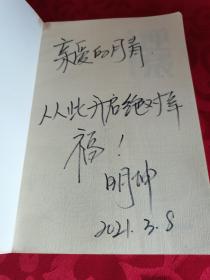 亲爱的月青
从此开启绝对幸
福！
明坤
2021.3.8